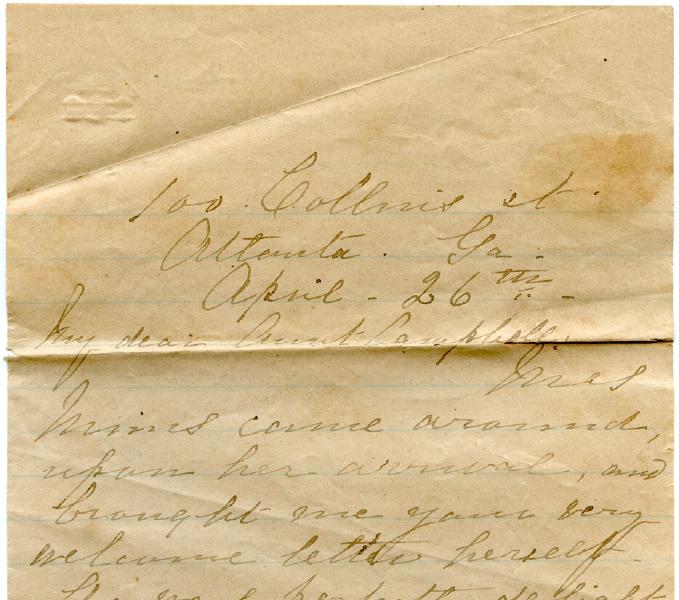 100 Collins st.
Atlanta. Ga.
April - 26th -
My dear Aunt Campbell.
Mrs
Mims came around,
upon her arrival, and
brought me your very
welcome letter herself.